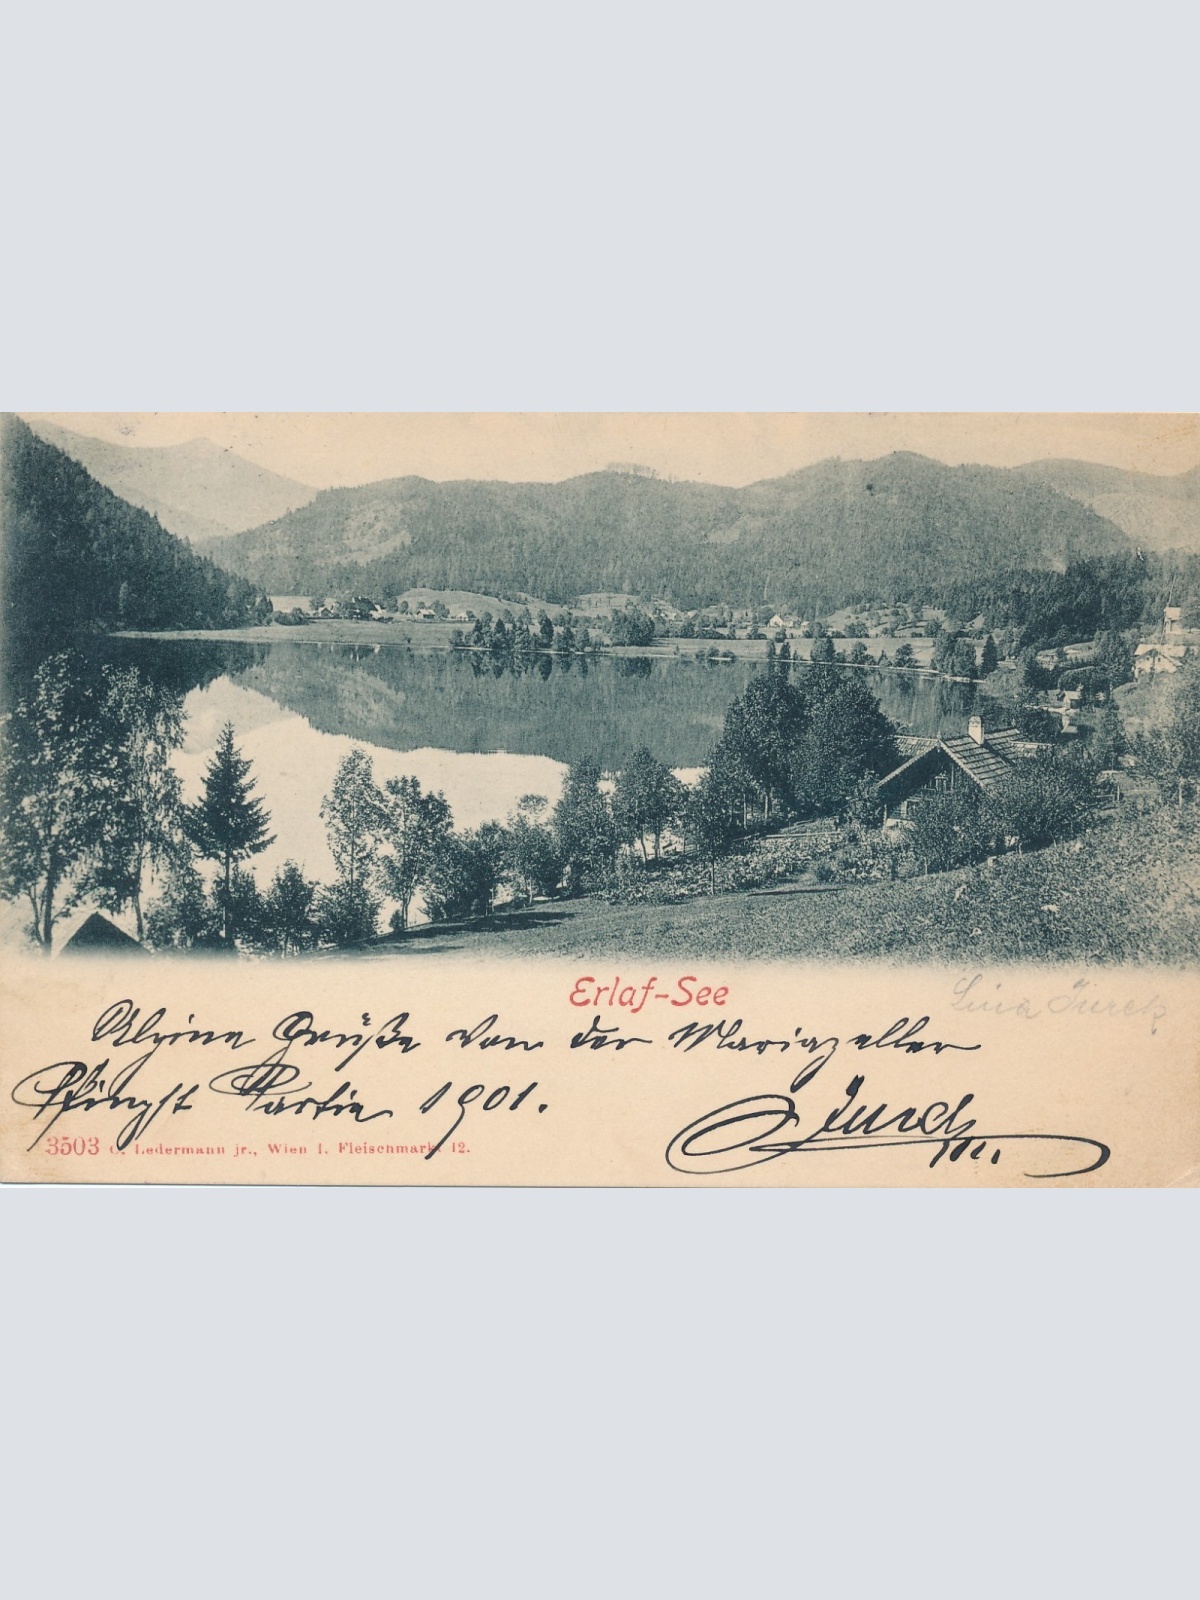 Erlaf-See
Lina Jurek
Alpine Grüße von der Mariazeller
Pfingst Partie 1901.
Jurek
3503 C. Ledermann jr., Wien I. Fleischmarkt 12.